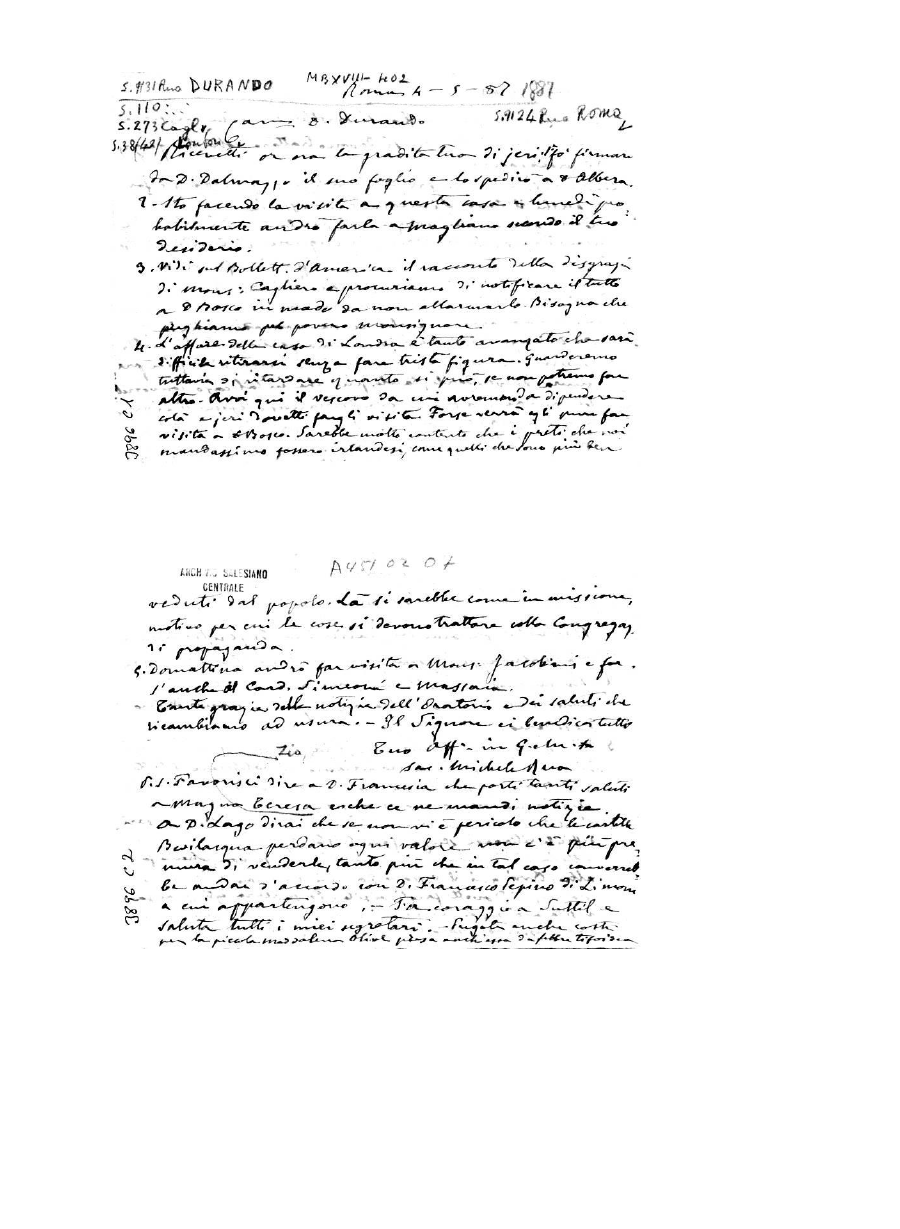 S.9131 Rua DURANDO MBXVIII-402
Roma 4 - 5 - 87 1887
S.110:
S.273 Cagl. Caro D. Durando S.9124 Rua ROMA
S.38(42)- Londra
Ricevetti or ora la gradita tua di jeri. Fo firmare
da D. Dalmazzo il suo foglio e lo spedirò a D Albera.
2. Sto facendo la visita a questa casa e lunedì pro-
babilmente andrò farla a Magliano secondo il tuo
desiderio.
3. Vidi sul Bollett. d'America il racconto della disgrazia
di Mons: Cagliero e procuriamo di notificare il tutto
a D Bosco in modo da non allarmarlo. Bisogna che
preghiamo pel povero monsignore.
4. L'affare della casa di Londra è tanto avanzato che sarà
difficile ritirarsi senza fare trista figura. Guarderemo
tuttavia di ritardare quanto si può, se non potremo far
altro. Avvi qui il vescovo da cui avremmo da dipendere
colà e jeri dovetti fargli visita. Forse verrà egli pure far
visita a D Bosco. Sarebbe molto contento che i preti che noi
mandassimo fossero irlandesi, come quelli che sono più ben
3896 C1
ARCHIVIO SALESIANO
CENTRALE
A451 02 07
veduti dal popolo. Là si sarebbe come in missione,
motivo per cui le cose si devono trattare colla Congregaz.
di propaganda.
5. Domattina andrò far visita a Mons. Jacobini e for-
s'anche al Card. Simeoni e Massaia.
Tante grazie delle notizie dell'Oratorio e dei saluti che
ricambiamo ad usura. - Il Signore ci benedica tutti
Zio Tuo Aff. in G. e M.
Sac. Michele Rua
P.S. Favorisci dire a D. Francesia che porti tanti saluti
a Magna Teresa e che ce ne mandi notizie.
A D. Lago dirai che se non vi è pericolo che le cartelle
Bevilacqua perdano ogni valore non c'è più pre-
mura di venderle, tanto più che in tal caso converreb-
be andar d'accordo con D. Francesco Pepino di Limone
a cui appartengono. - Fa coraggio a Suttil e
saluta tutti i miei segretari. - Pregate anche costì
per la piccola Maddalena Olive presa anch'essa da febbre tifoidea
3896 C2